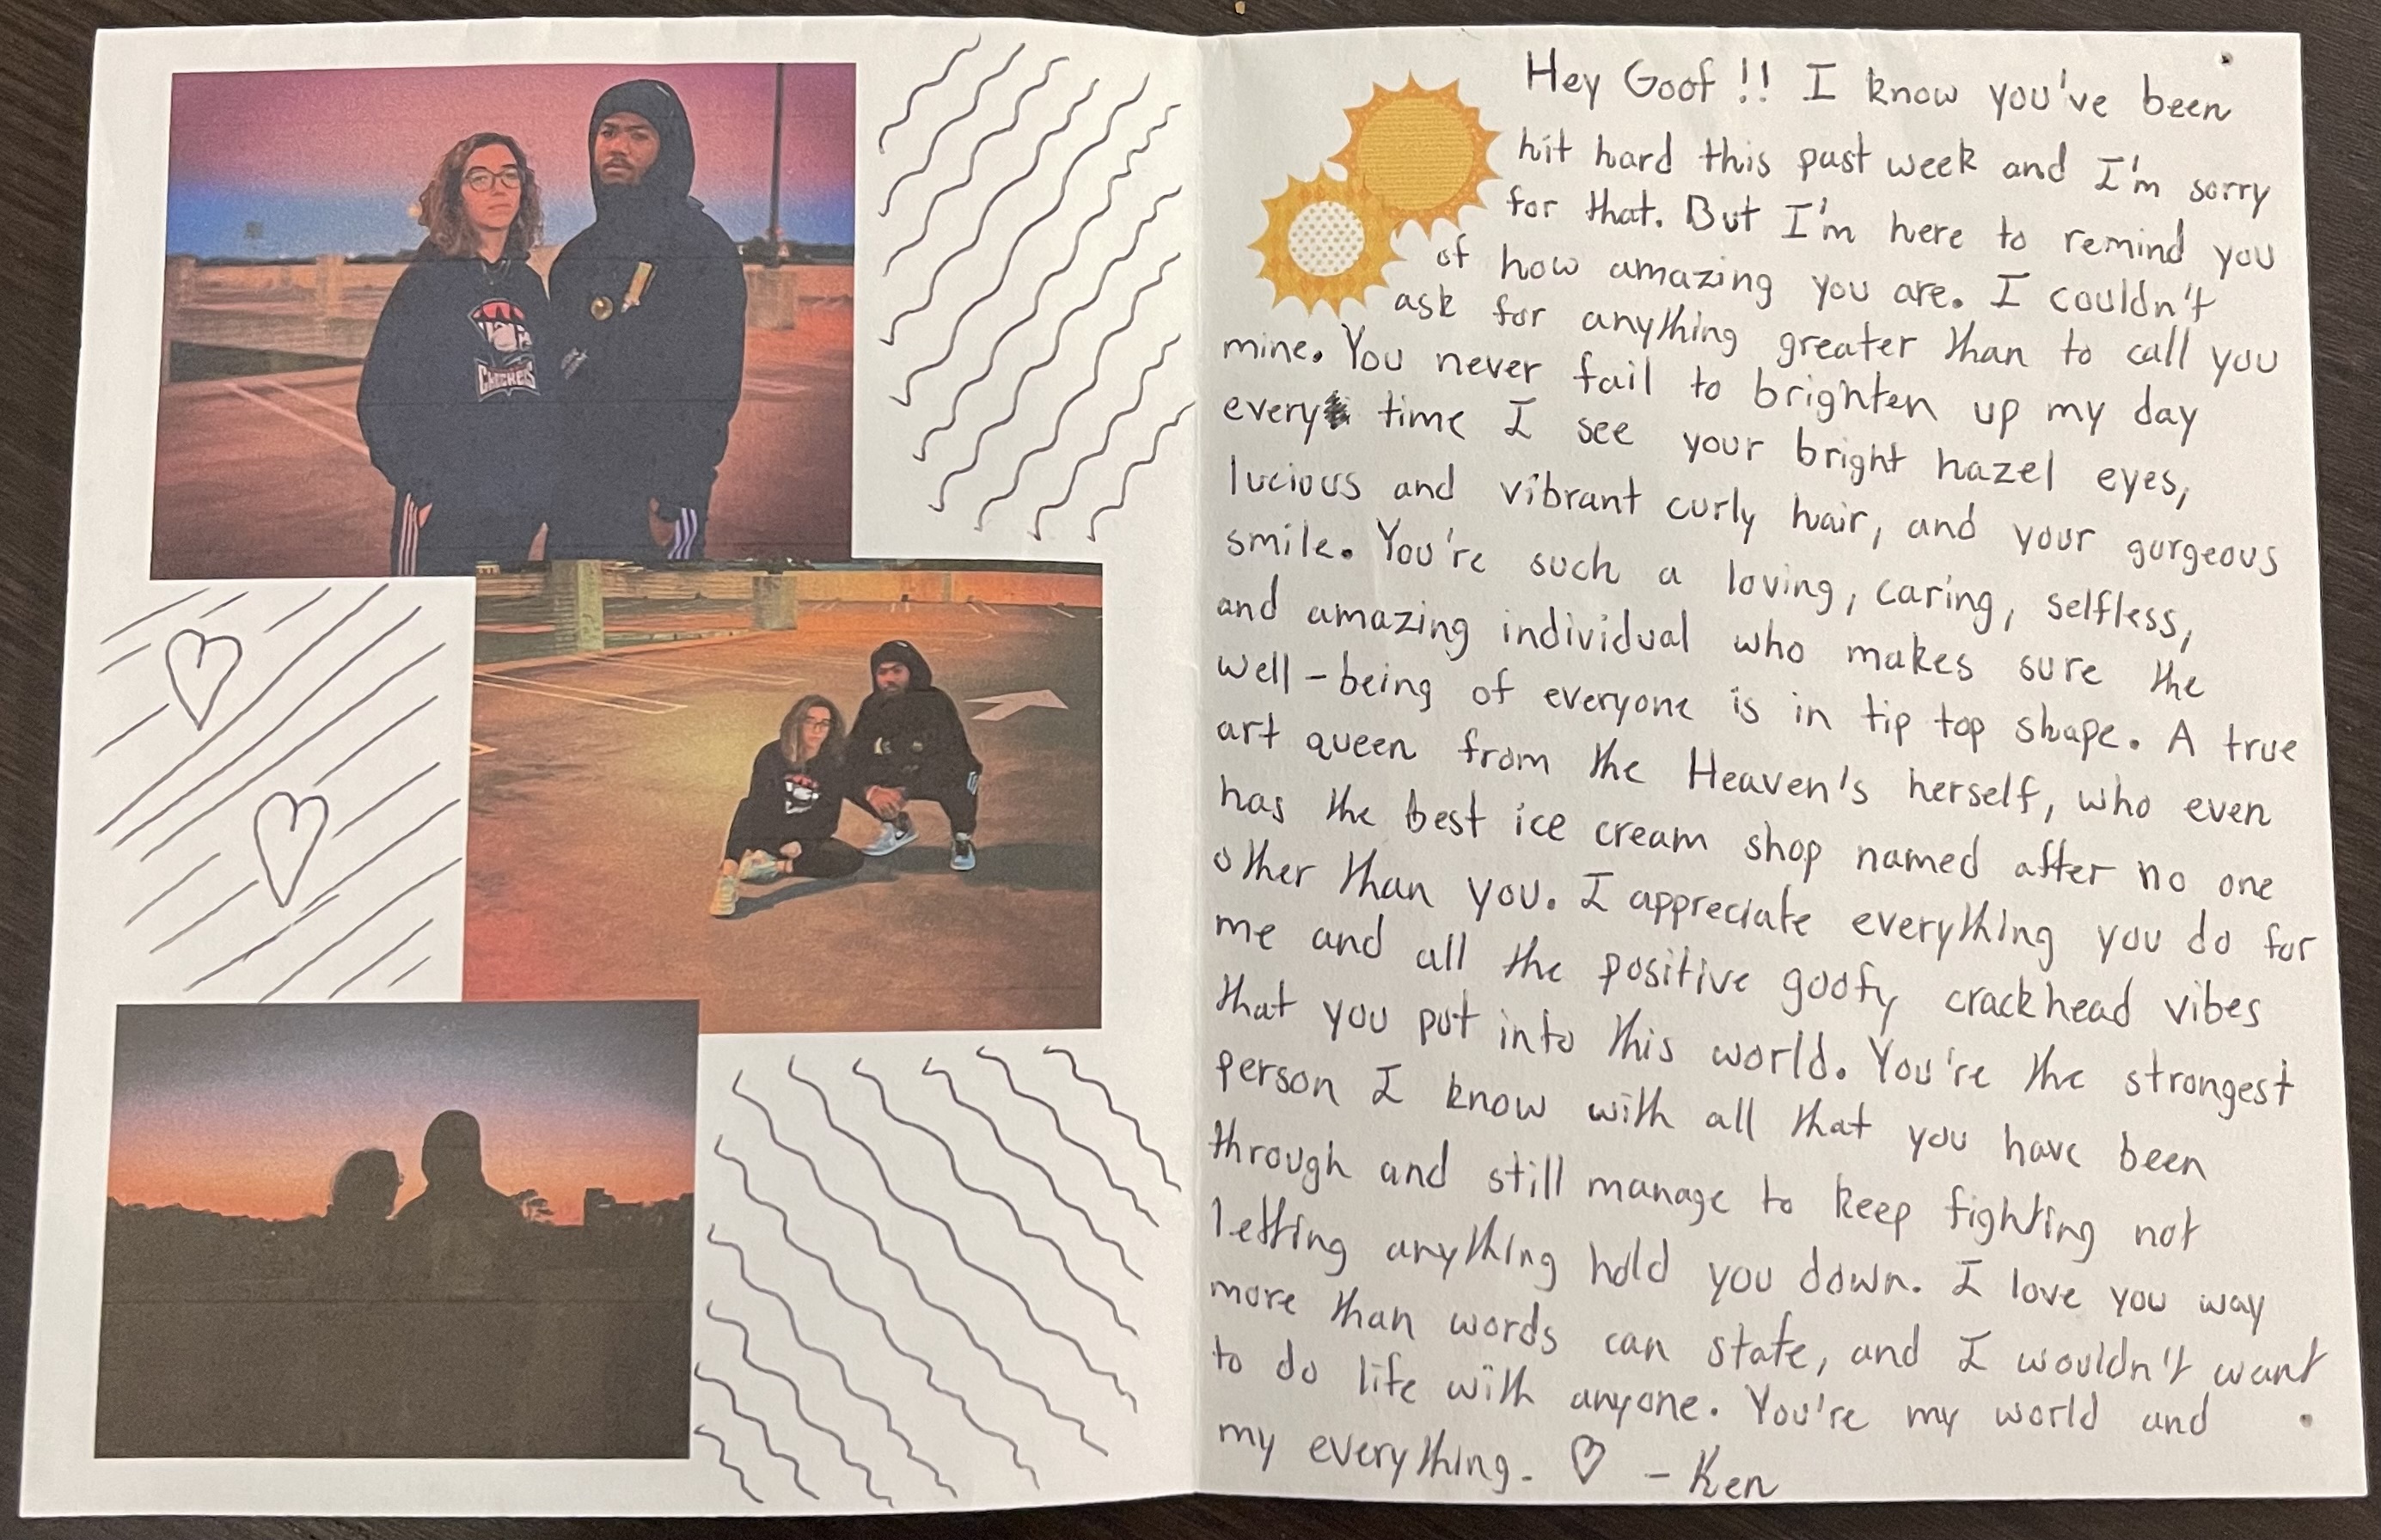 CHECKERS
Hey Goof !! I know you've been
hit hard this past week and I'm sorry
for that. But I'm here to remind you
of how amazing you are. I couldn't
ask for anything greater than to call you
mine. You never fail to brighten up my day
every time I see your bright hazel eyes,
lucious and vibrant curly hair, and your gorgeous
smile. You're such a loving, caring, selfless,
and amazing individual who makes sure the
well-being of everyone is in tip top shape. A true
art queen from the Heaven's herself, who even
has the best ice cream shop named after no one
other than you. I appreciate everything you do for
me and all the positive goofy crackhead vibes
that you put into this world. You're the strongest
person I know with all that you have been
through and still manage to keep fighting not
letting anything hold you down. I love you way
more than words can state, and I wouldn't want
to do life with anyone. You're my world and
my everything. ♡ - Ken